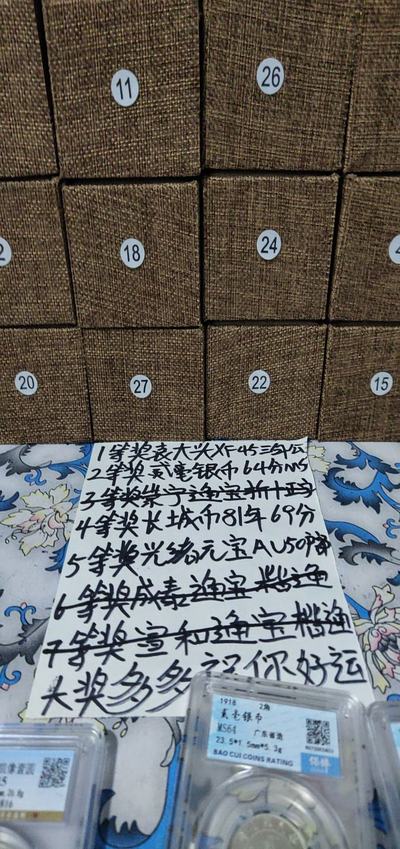 11
26
2
18
24
4
20
27
22
15
1等奖袁大头XF45三年公
2等奖贰毫银币64分MS
3等奖崇宁通宝折十
4等奖长城币81年69分
5等奖光绪元宝AU50
6等奖咸泰通宝楷通
7等奖宣和通宝楷通
大奖多多祝你好运
1918 2角
贰毫银币
MS64 广东省造
23.5*1.5mm*5.3g
BAO CUI COINS RATING